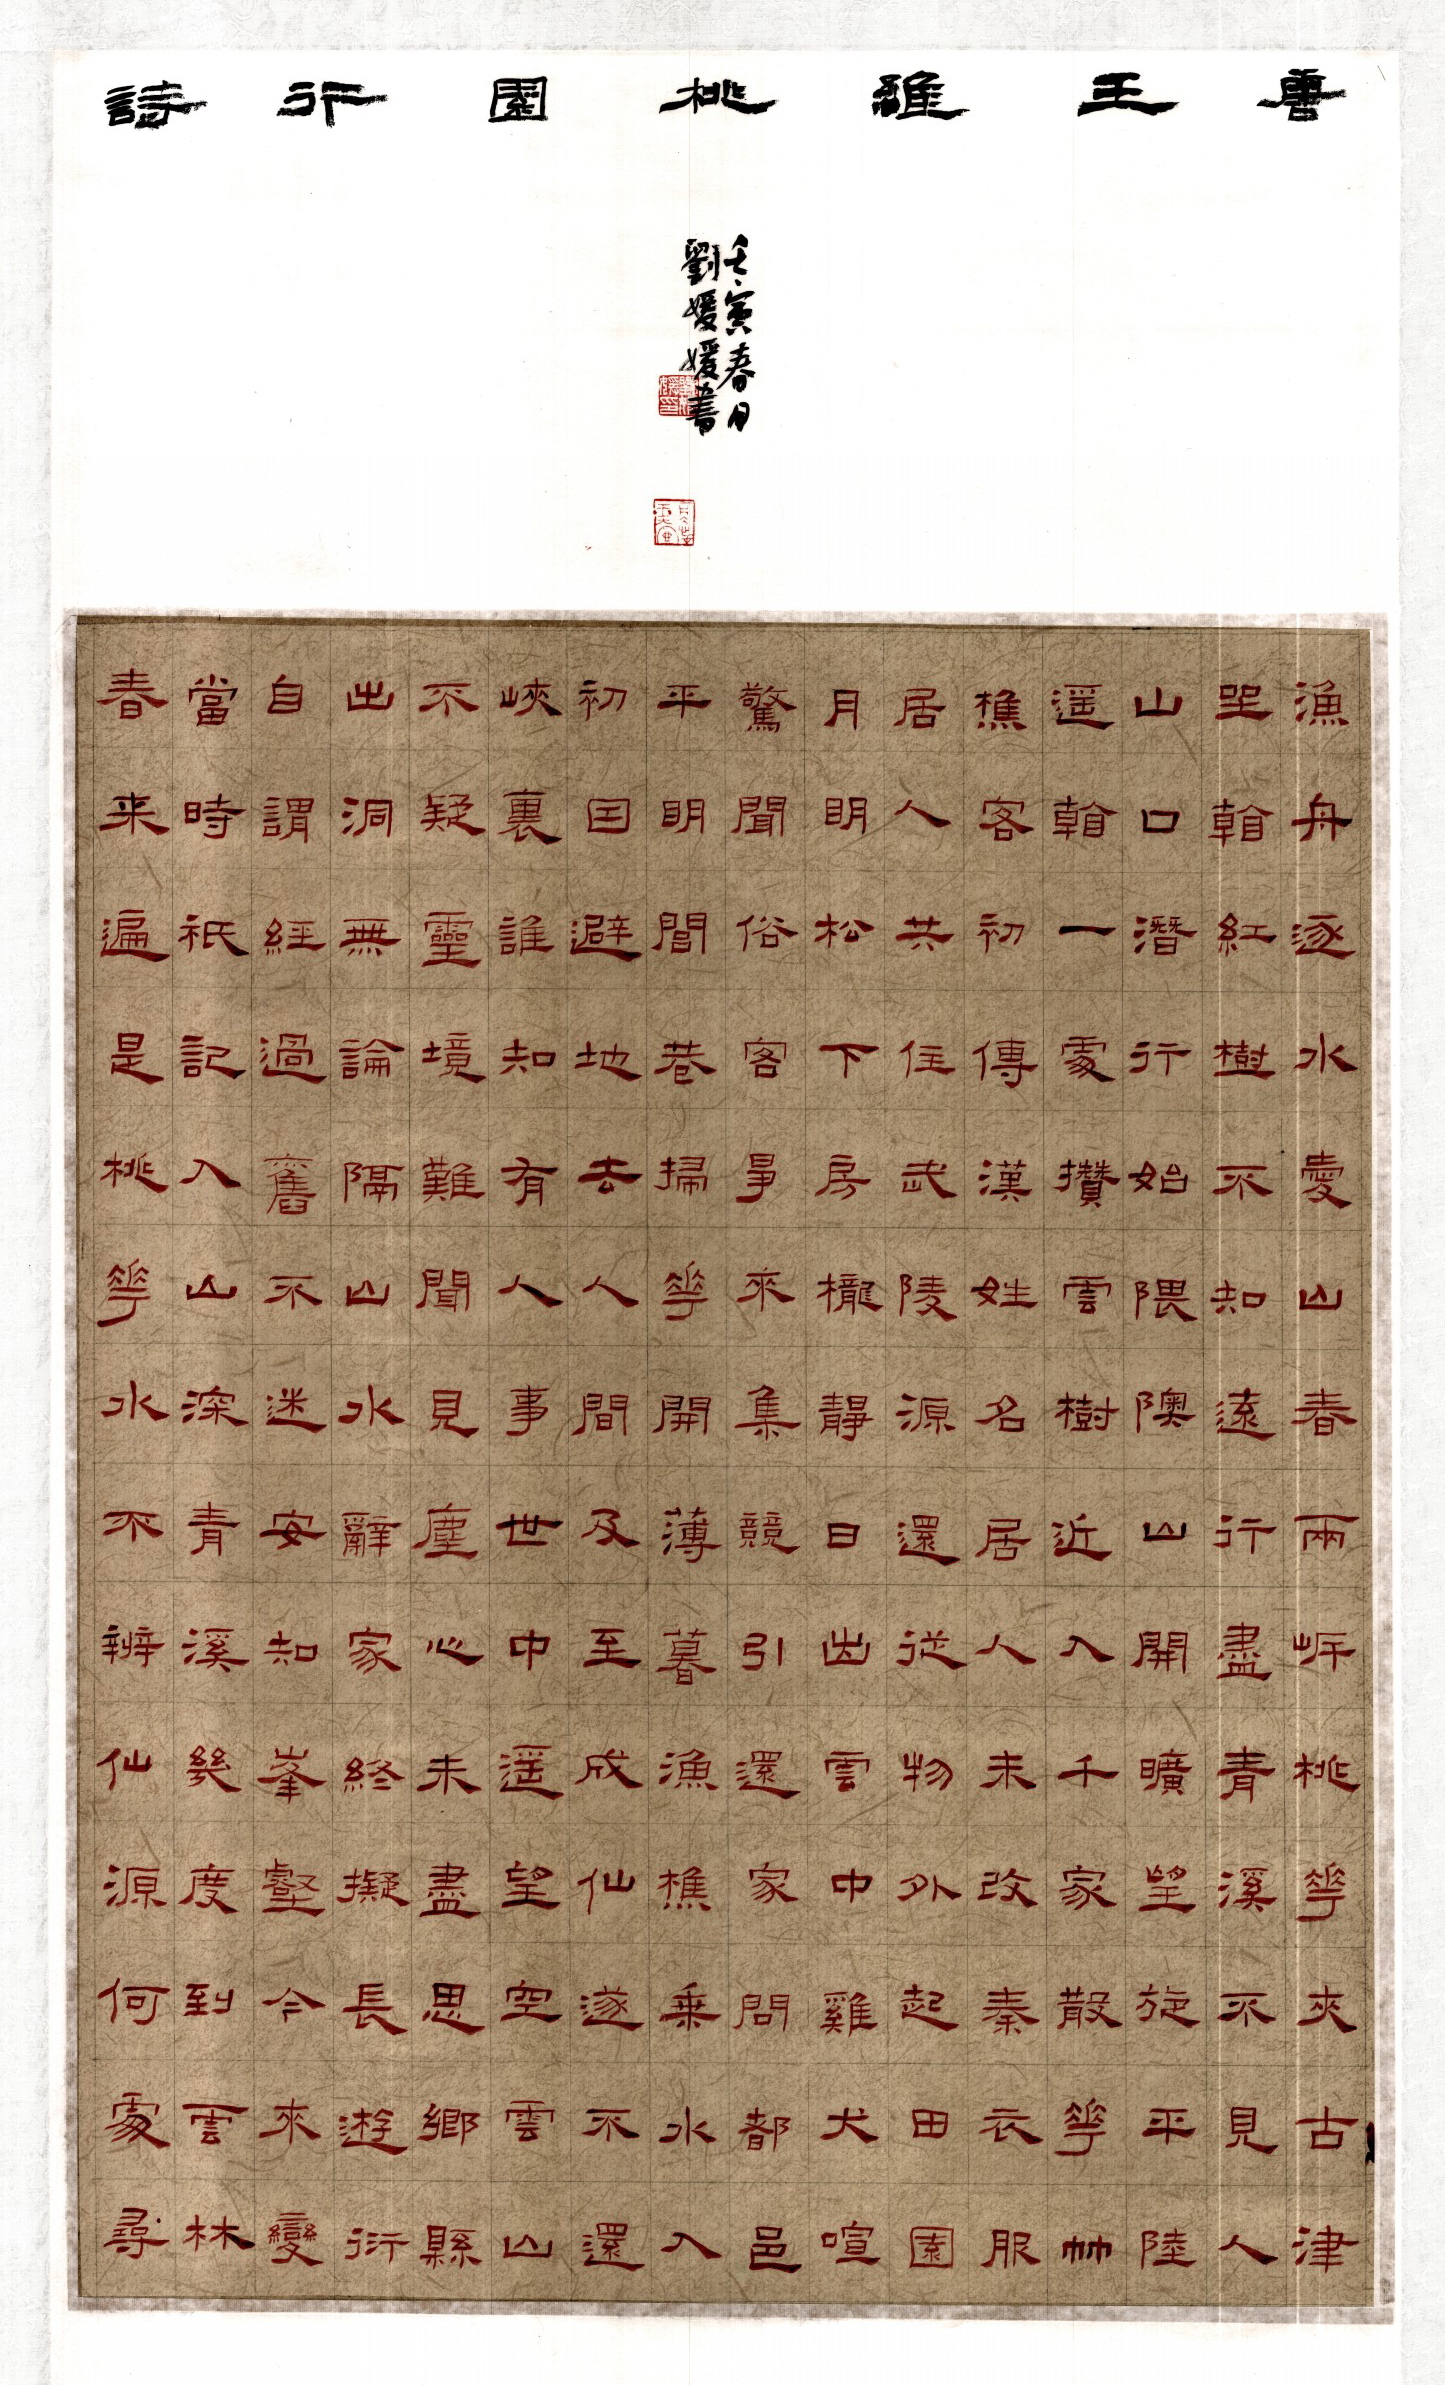 唐王維桃園行詩
壬寅春月
劉媛媛書
漁舟逐水愛山春兩岸桃花夾古津
坐看紅樹不知遠行盡青溪不見人
山口潛行始隈隩山開曠望旋平陸
遙看一處攢雲樹近入千家散花竹
樵客初傳漢姓名居人未改秦衣服
居人共住武陵源還從物外起田園
月明松下房櫳靜日出雲中雞犬喧
驚聞俗客爭來集競引還家問都邑
平明閭巷掃花開薄暮漁樵乘水入
初因避地去人間及至成仙遂不還
峽裏誰知有人事世中遙望空雲山
不疑靈境難聞見塵心未盡思鄉縣
出洞無論隔山水辭家終擬長遊衍
自謂經過舊不迷安知峯壑今來變
當時祇記入山深青溪幾度到雲林
春来遍是桃花水不辨仙源何處尋